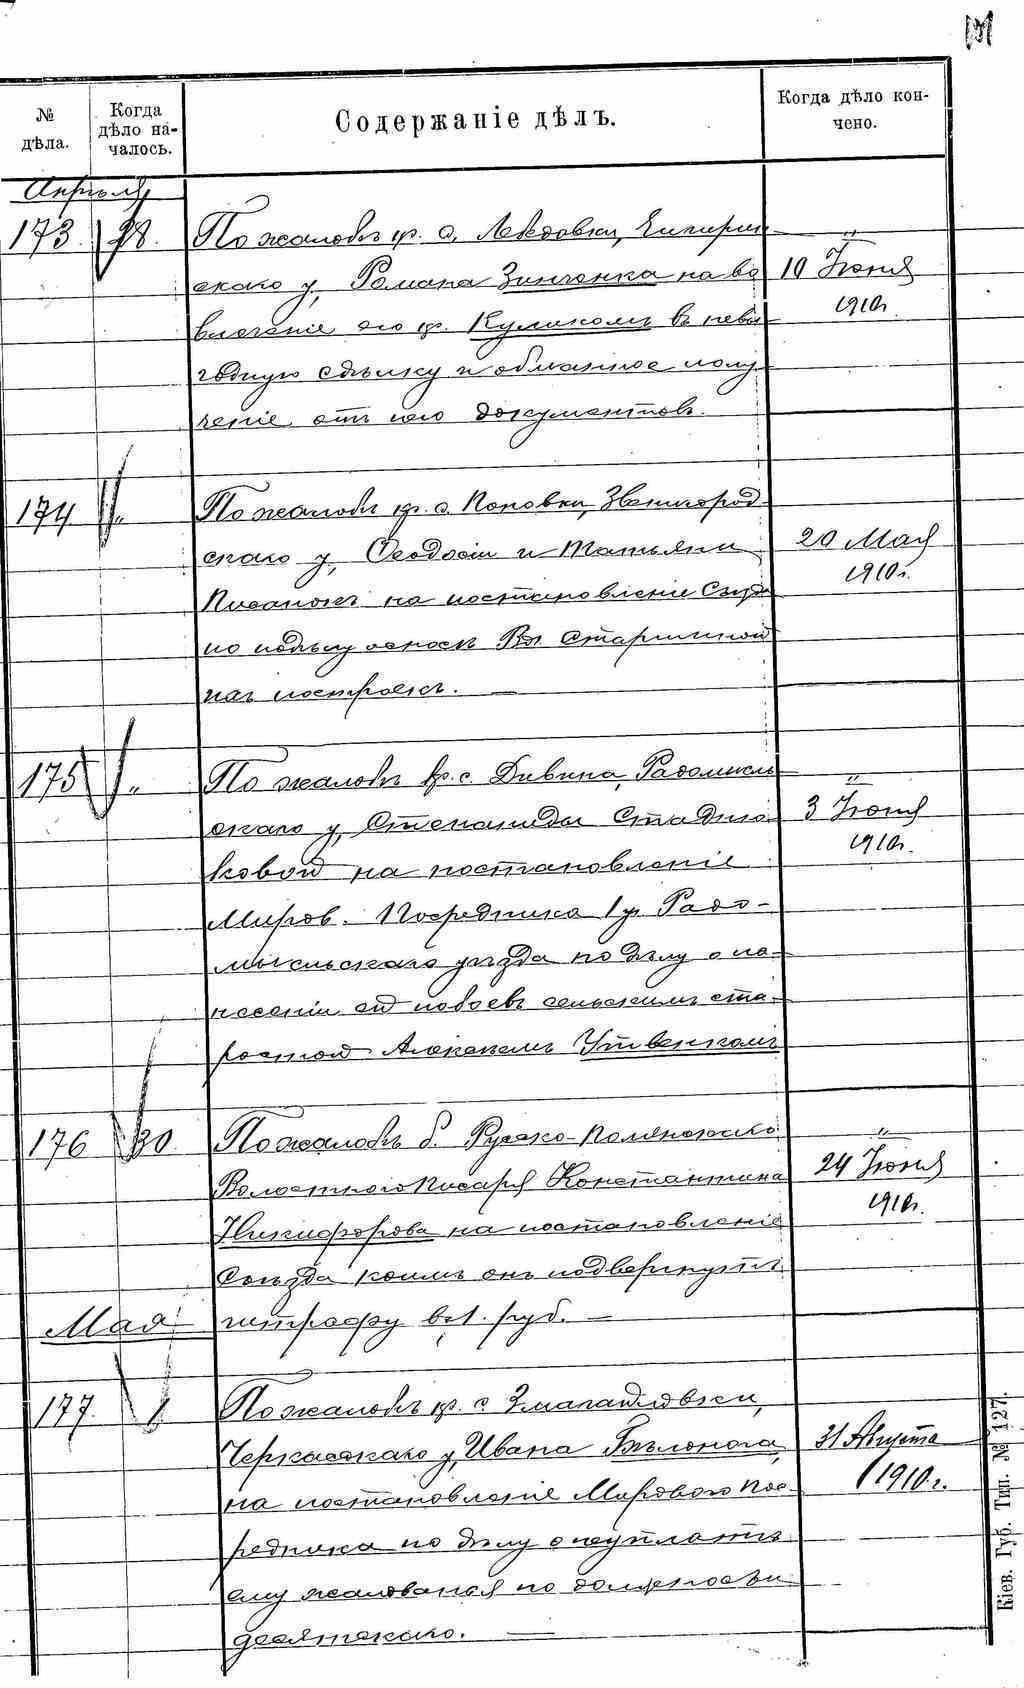 № дѣла.
Когда дѣло началось.
Содержаніе дѣлъ.
Когда дѣло кончено.
Апрѣля
173. 28. По жалобѣ кр. с.
скаго у, Романа Зинченка на во
влеченіе его кр. Куликомъ въ невы
годную сдѣлку и обманное полу
ченіе отъ него документовъ.
10 Іюня
1910г.
174 " По жалобѣ кр. с. Поповки, Звенигород
скаго у, Ѳеодосіи и Татьяны
на постановленіе Съѣзда
по дѣлу Вол. Старшиной
построекъ. —
20 Мая
1910г.
175 " По жалобѣ кр. с. Дивина, Радомысль
скаго у, Степаниды Стадню
ковой на постановленіе
Миров. Посредника 1 у. Радо-
мысльскаго уѣзда по дѣлу о на-
несеніи ей побоевъ сельскимъ ста-
ростой Алексѣемъ
3 Іюня
1910г.
176 30. По жалобѣ б. Русско-Полянскаго
Волостного Писаря Константина
Никифорова на постановленіе
Съѣзда коимъ онъ подвергнутъ
штрафу въ 1. руб. —
24 Іюня
1910г.
Мая
177. 1 По жалобѣ кр. с.
Черкасскаго у, Ивана Бѣлонога,
на постановленіе Мирового Пос-
редника по дѣлу о неуплатѣ
ему жалованья по должности
десятскаго. —
31 Августа
1910.г.
Кіев. Губ. Тип. № 127.